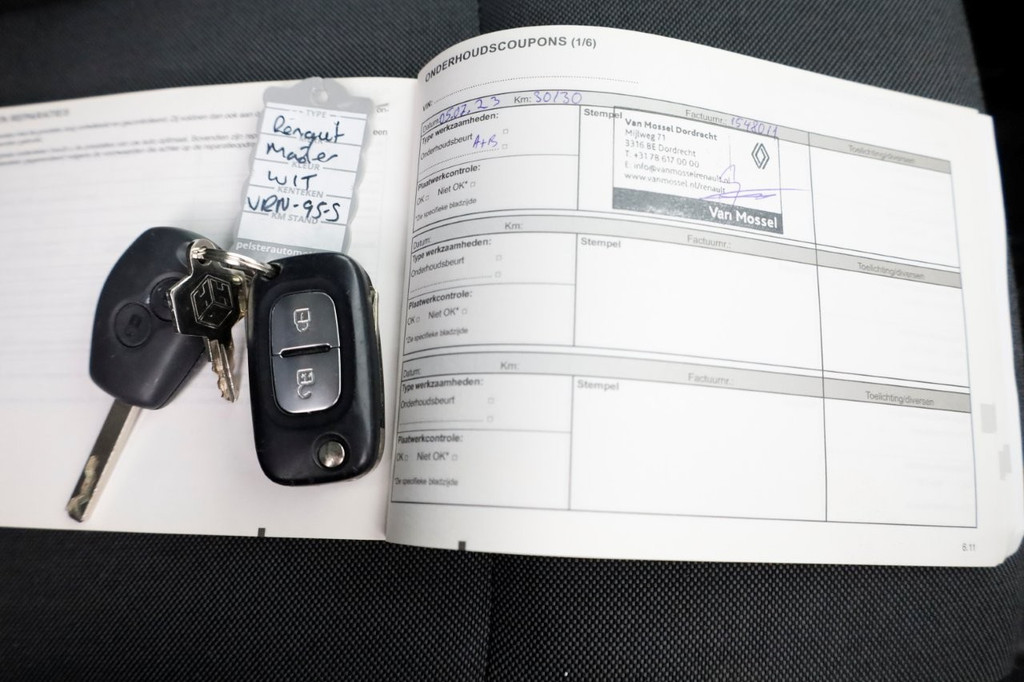 TYPE
Renaut
Master
KLEUR
WIT
KENTEKEN
VRN-95-S
KM STAND
pelsterautomo
ONDERHOUDSCOUPONS (1/6)
VIN:
Datum: 05.07.23 Km: 30130 Factuurnr.: 1548011 Toelichting/diversen
Type werkzaamheden:
Onderhoudsbeurt A+B
Plaatwerkcontrole:
OK Niet OK*
*De specifieke bladzijde
Stempel
Van Mossel Dordrecht
Mijlweg 71
3316 BE Dordrecht
T. +31 78 617 00 00
E. info@vanmosselrenault.nl
www.vanmossel.nl/renault
Van Mossel
Datum: Km: Factuurnr.: Toelichting/diversen
Type werkzaamheden:
Onderhoudsbeurt
Plaatwerkcontrole:
OK Niet OK*
*De specifieke bladzijde
Stempel
Datum: Km: Factuurnr.: Toelichting/diversen
Type werkzaamheden:
Onderhoudsbeurt
Plaatwerkcontrole:
OK Niet OK*
*De specifieke bladzijde
Stempel
6.11